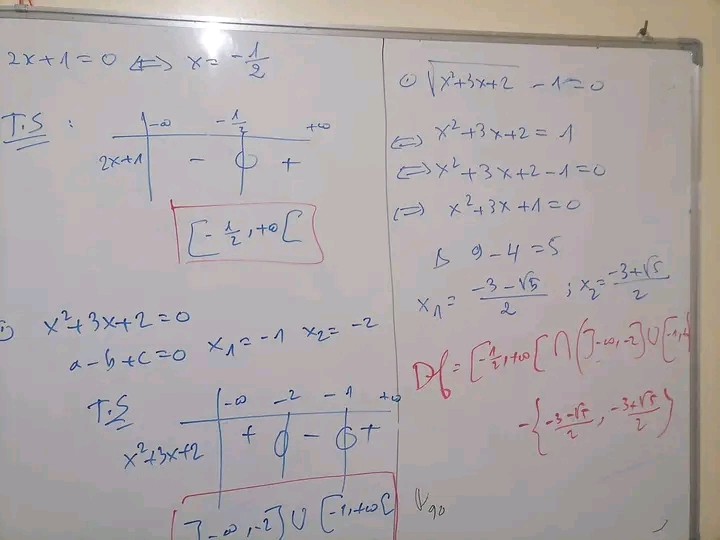 2x+1=0 ⟺ x= -1/2
T.S :
-∞ -1/2 +∞
2x+1 - 0 +
[-1/2, +∞[
x²+3x+2=0
a-b+c=0 x₁=-1 x₂=-2
T.S
-∞ -2 -1 +∞
x²+3x+2 + 0 - 0 +
]-∞,-2] ∪ [-1,+∞[
√x²+3x+2 -1=0
⟺ x²+3x+2=1
⟺ x²+3x+2-1=0
⟺ x²+3x+1=0
Δ 9-4=5
x₁= -3-√5/2 ; x₂= -3+√5/2
Df= [-1/2,+∞[ ∩ (]-∞,-2] ∪ [-1,+
-{-3-√5/2, -3+√5/2}